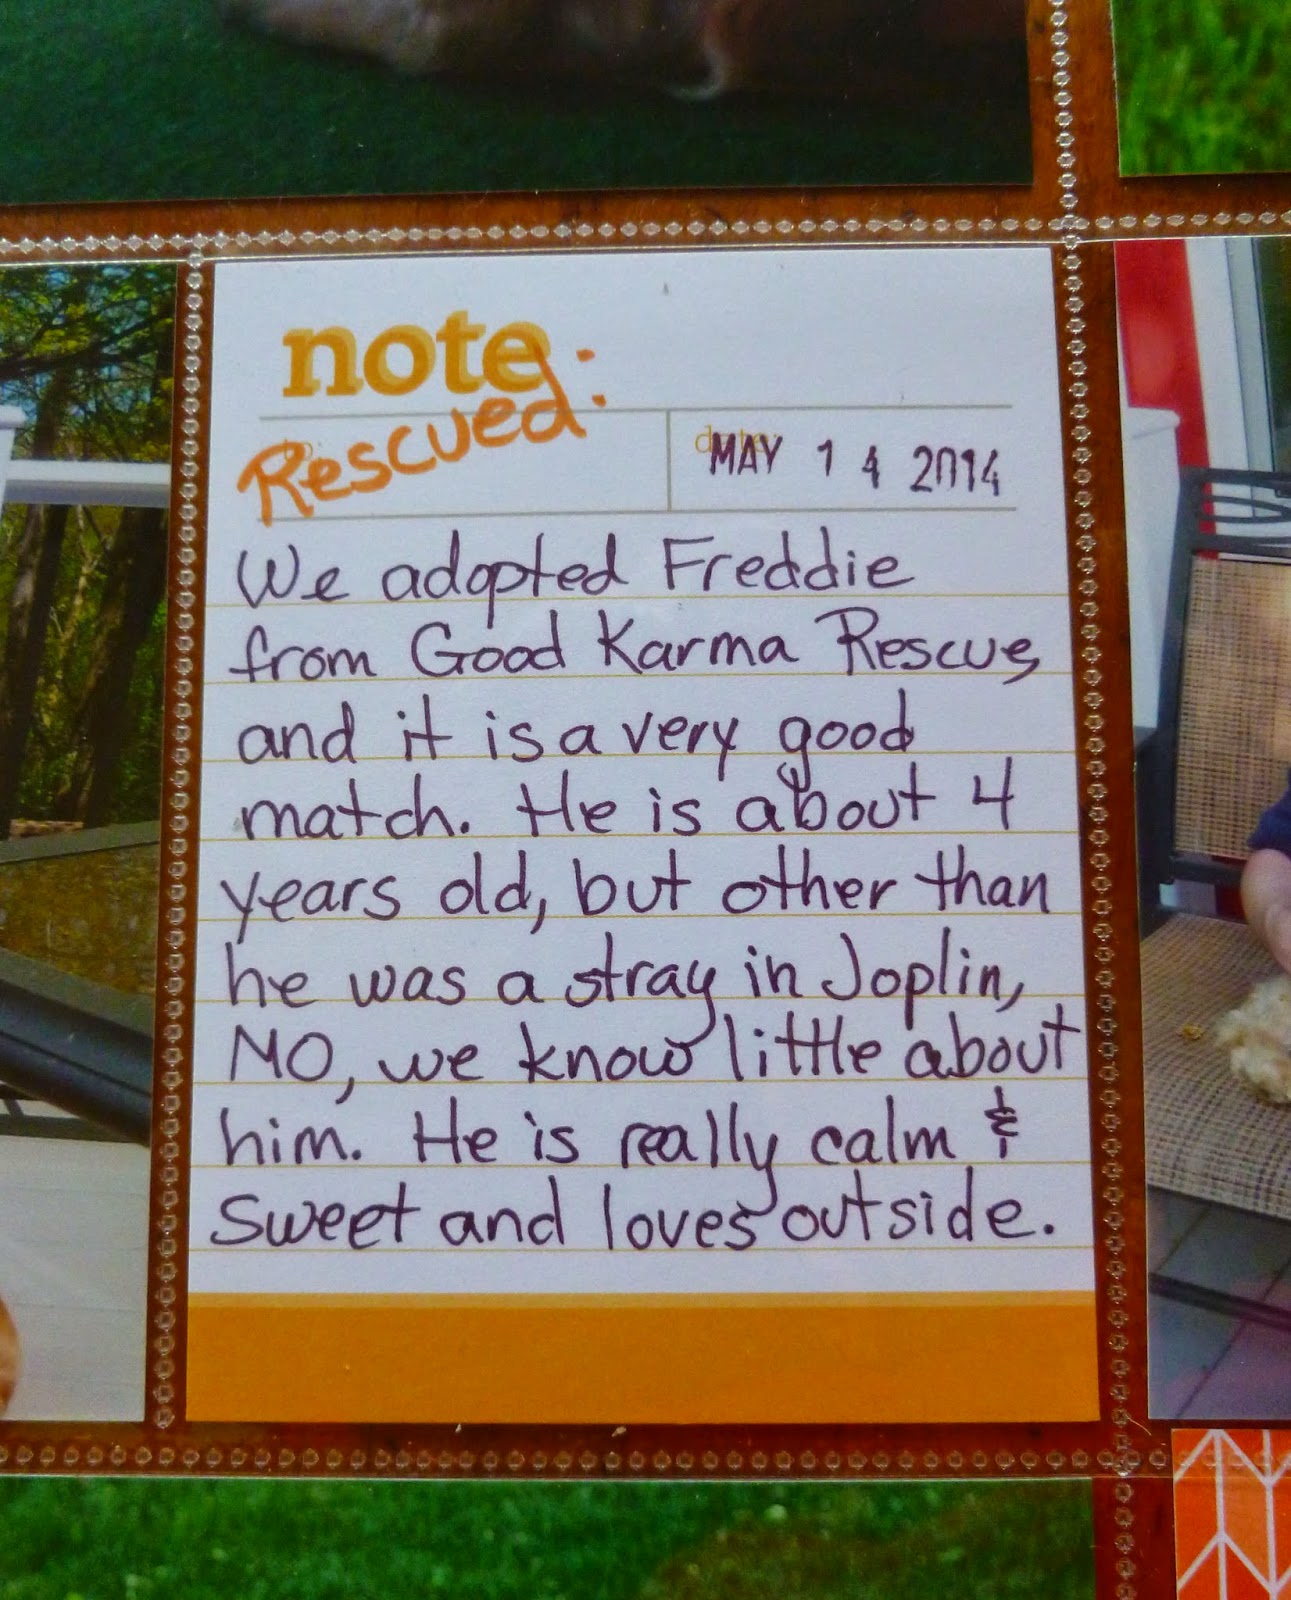 note
Rescued:
date
MAY 14 2014
We adopted Freddie
from Good Karma Rescue,
and it is a very good
match. He is about 4
years old, but other than
he was a stray in Joplin,
MO, we know little about
him. He is really calm &
sweet and loves outside.